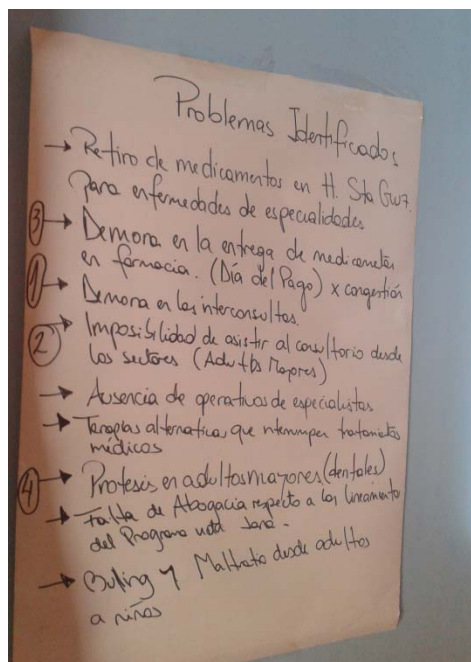 Problemas Identificados
→ Retiro de medicamentos en H. Sta Cruz.
para enfermedades de especialidades
③ → Demora en la entrega de medicametos
en farmacia. (Día del Pago) x congestión
① → Demora en las interconsultas.
② → Imposibilidad de asistir al consultorio desde
los sectores (Adultos Mayores)
→ Ausencia de operativos de especialistas
→ Terapias alternativa que interrumpen tratamientos
médicos
④ → Protesis en adultos mayores (dentales)
→ Falta de Abogacia respecto a los lineamientos
del Programa vida sana.
→ Buling y Maltrato desde adultos
a niños